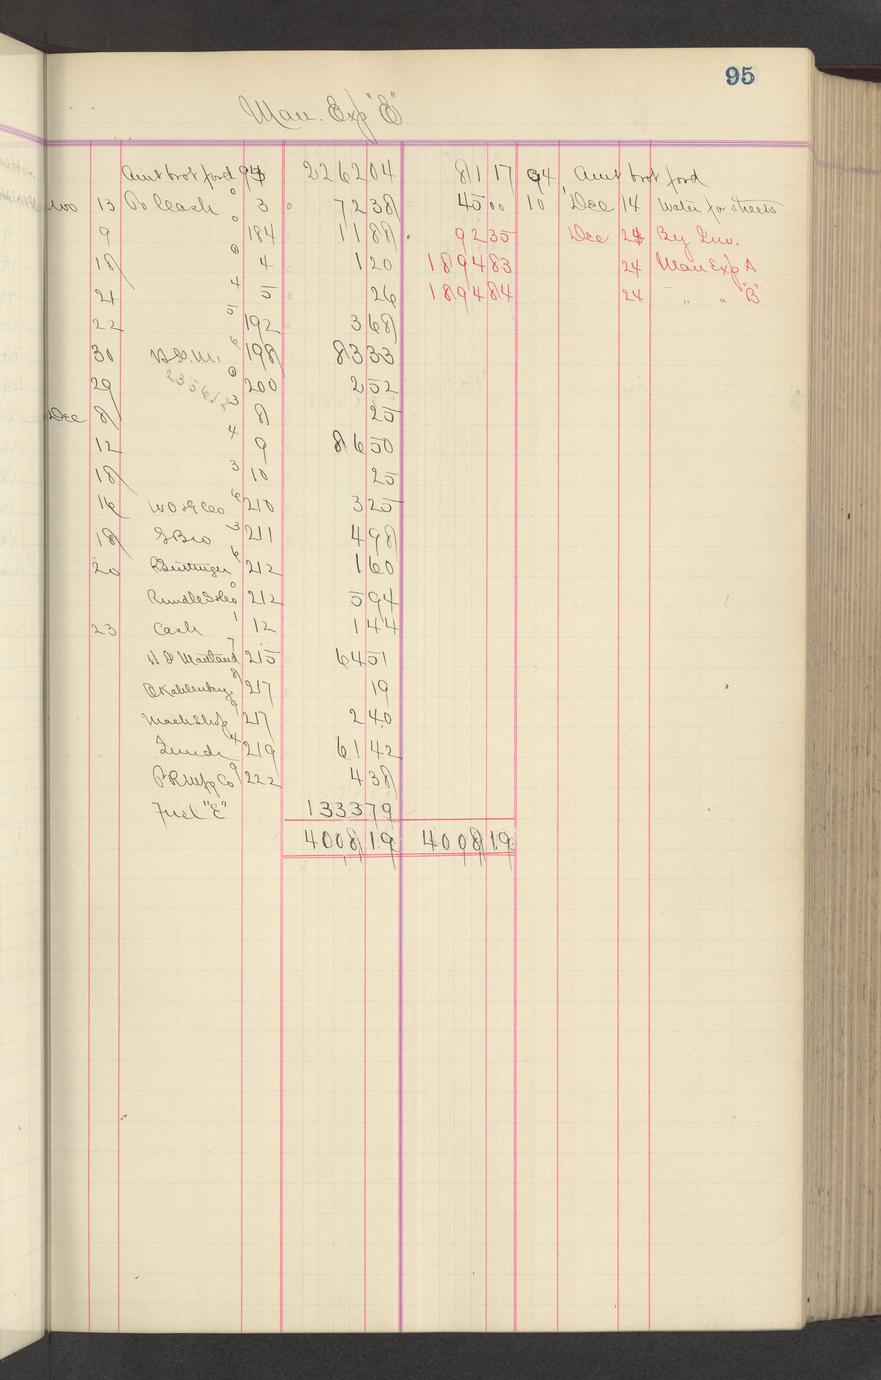 95
Man. Exp "E"
Amt brot ford 94 2262 04 81 17 94 Amt brot ford
Nov 13 To Cash 3 72 38 45 00 10 Dec 14 Water for streets
9 184 11 88 92 35 Dec 24 By Inv.
18 4 1 20 1894 83 24 Man Exp A
21 5 26 1894 84 24 " " "B"
22 192 3 68
30 198 83 33
29 200 2 52
235612
Dec 8 8 25
12 9 86 50
18 10 25
16 210 3 25
18 G Bro 211 4 98
20 212 1 60
Rundle S & Co 212 5 94
23 Cash 12 1 44
215 64 51
217 19
Mach Shop 217 2 40
219 61 42
P R Mfg Co 222 4 38
Fuel "E" 1333 79
4008 19 4008 19